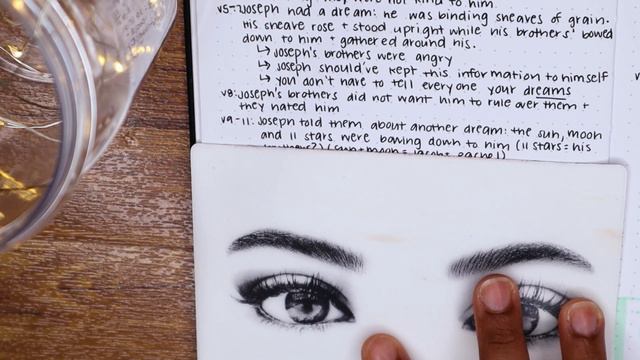 v5-Joseph had a dream: he was binding sheaves of grain.
his sheave rose + stood upright while his brothers' bowed
down to him + gathered around his.
↳ Joseph's brothers were angry
↳ Joseph should've kept this information to himself
↳ you don't have to tell everyone your dreams
v8: Joseph's brothers did not want him to rule over them +
they hated him
v9-11: Joseph told them about another dream: the sun, moon
and 11 stars were bowing down to him (11 stars = his